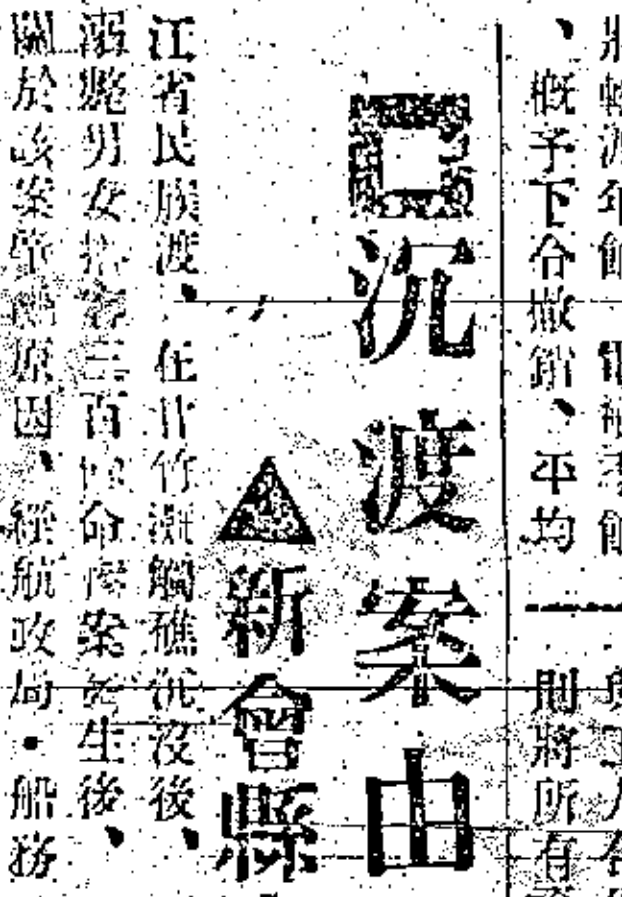 、概予下合撤銷、平均
則將所有
沉渡案由
新會縣
江省民族渡、在甘竹灘觸礁沉沒後、
溺斃男女搭客三百餘命慘案發生後、
關於該案肇禍原因、經航政局・船務